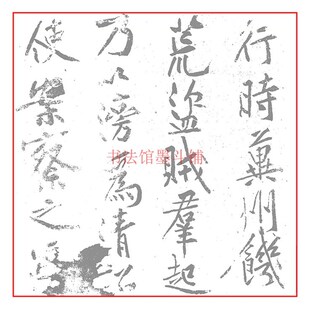 行時冀州饑
荒盜賊羣起
乃以滂為清詔
使案察之
书法馆墨斗铺